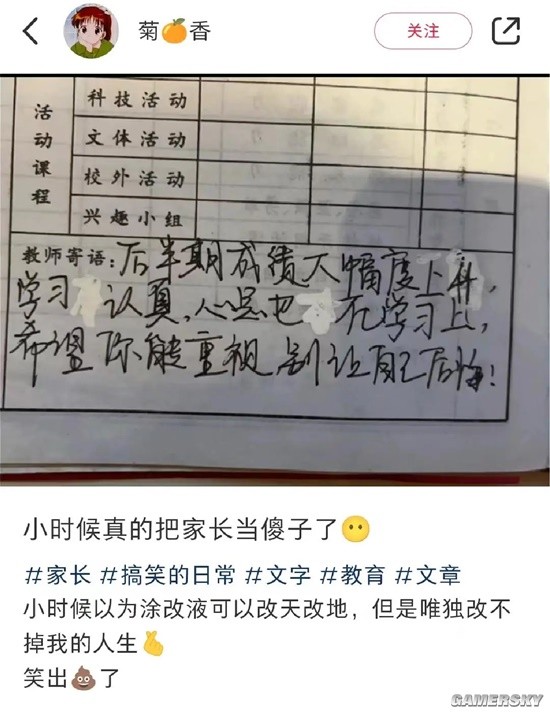 菊🍊香
关注
活动课程
科技活动
文体活动
校外活动
兴趣小组
教师寄语:后半期成绩大幅度上升,
学习 认真,心思也 在学习上,
希望你能重视别让自己后悔!
小时候真的把家长当傻子了😶
#家长 #搞笑的日常 #文字 #教育 #文章
小时候以为涂改液可以改天改地，但是唯独改不
掉我的人生🫰
笑出💩了
GAMERSKY